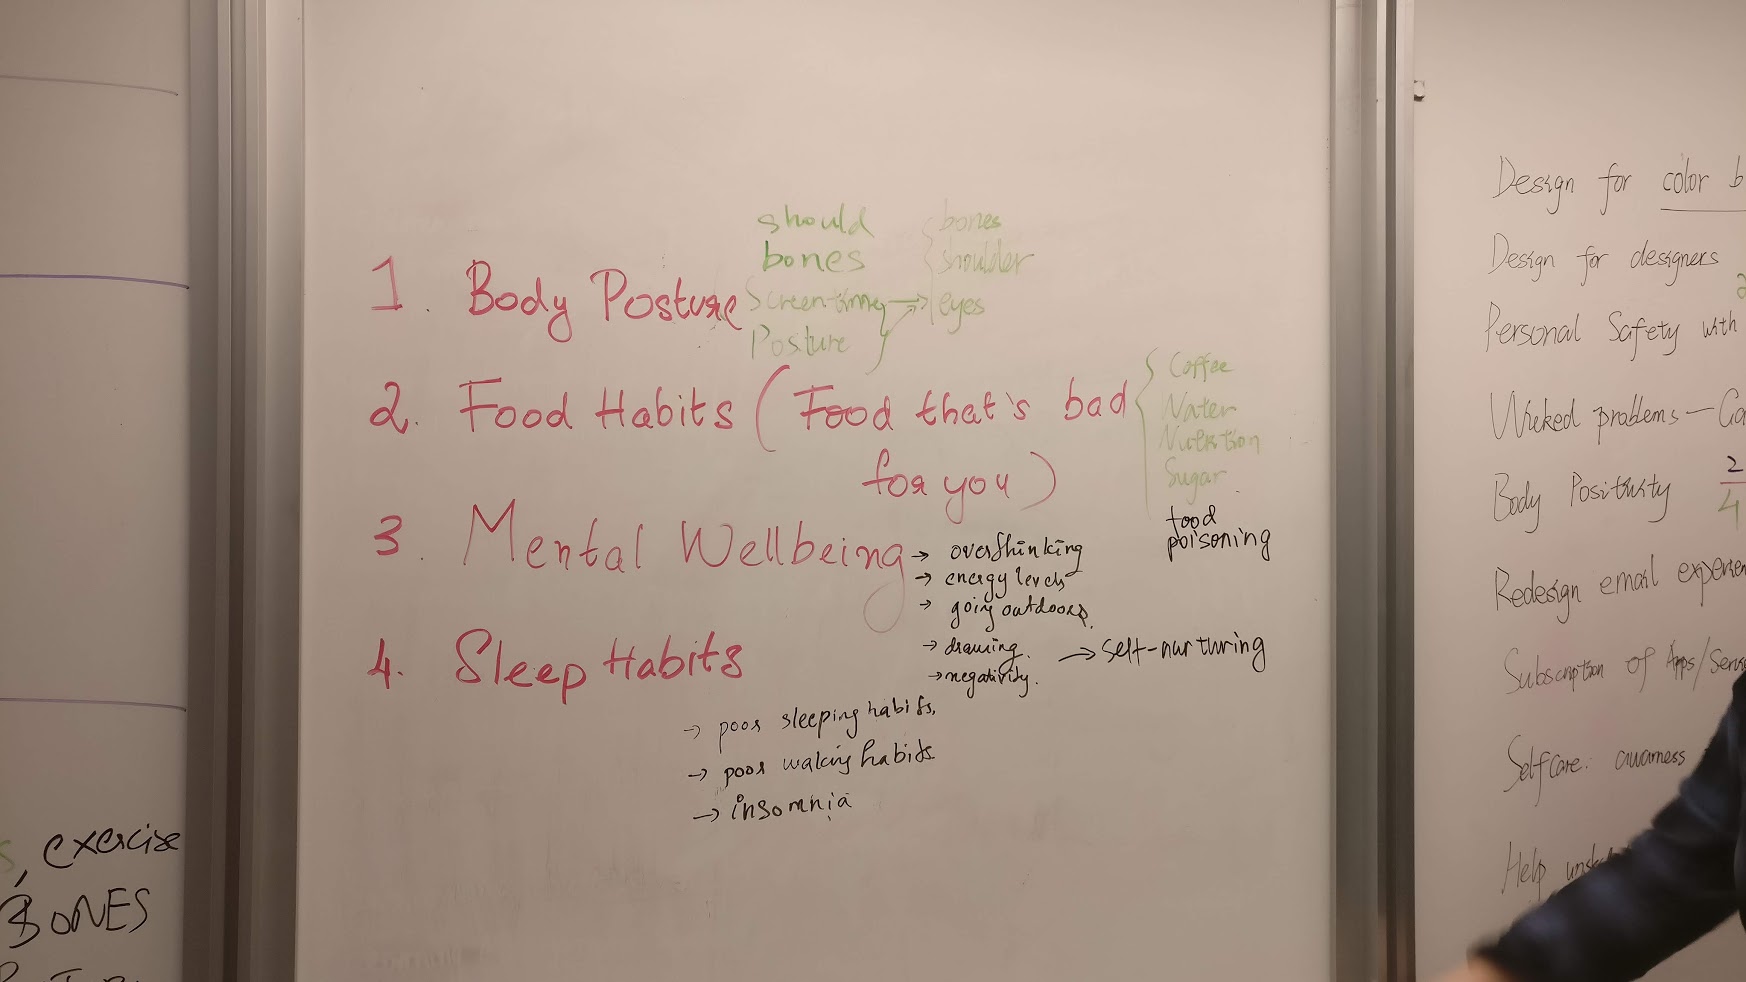 should
bones
Screen-time
Posture
bones
shoulder
eyes
1. Body Posture
2. Food Habits (Food that's bad
for you)
Coffee
Water
Nutrition
Sugar
food
poisoning
3. Mental Wellbeing
→ overthinking
→ energy levels
→ going outdoors.
→ drawing.
→ negativity.
→ self-nurturing
4. Sleep Habits
→ poor sleeping habits.
→ poor waking habits.
→ insomnia
exercise
BONES
Design for color b
Design for designers
Personal Safety with
Wicked problems —
Body Positivity 2
4
Redesign email experien
Subscription of Apps/Serv
Selfcare. awarness
Help